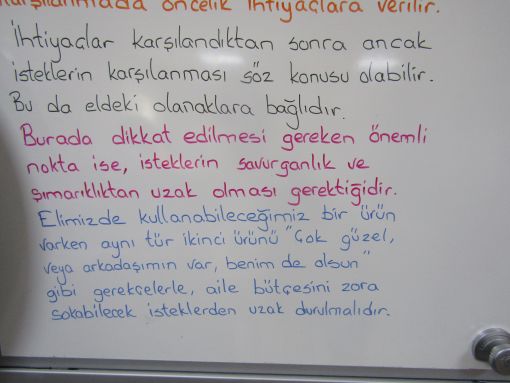 karşılanmada öncelik ihtiyaçlara verilir.
İhtiyaçlar karşılandıktan sonra ancak
isteklerin karşılanması söz konusu olabilir.
Bu da eldeki olanaklara bağlıdır.
Burada dikkat edilmesi gereken önemli
nokta ise, isteklerin savurganlık ve
şımarıklıktan uzak olması gerektiğidir.
Elimizde kullanabileceğimiz bir ürün
varken aynı tür ikinci ürünü "Çok güzel,
veya arkadaşımın var, benim de olsun"
gibi gerekçelerle, aile bütçesini zora
sokabilecek isteklerden uzak durulmalıdır.